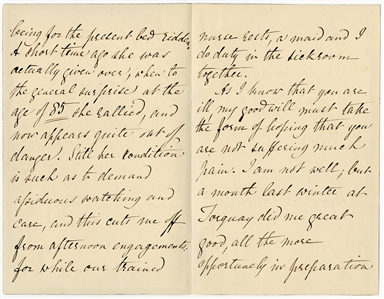 being for the present bed-ridden.
A short time ago she was
actually given over; when to
the general surprise at the
age of 85 she rallied, and
now appears quite out of
danger. Still her condition
is such as to demand
assiduous watching and
care, and this cuts me off
from afternoon engagements:
for while our trained
nurse rests, a maid and I
do duty in the sickroom
together.
As I know that you are
ill my goodwill must take
the form of hoping that you
are not suffering much
pain. I am not well; but
a month last winter at
Torquay did me great
good, all the more
opportunely in preparation